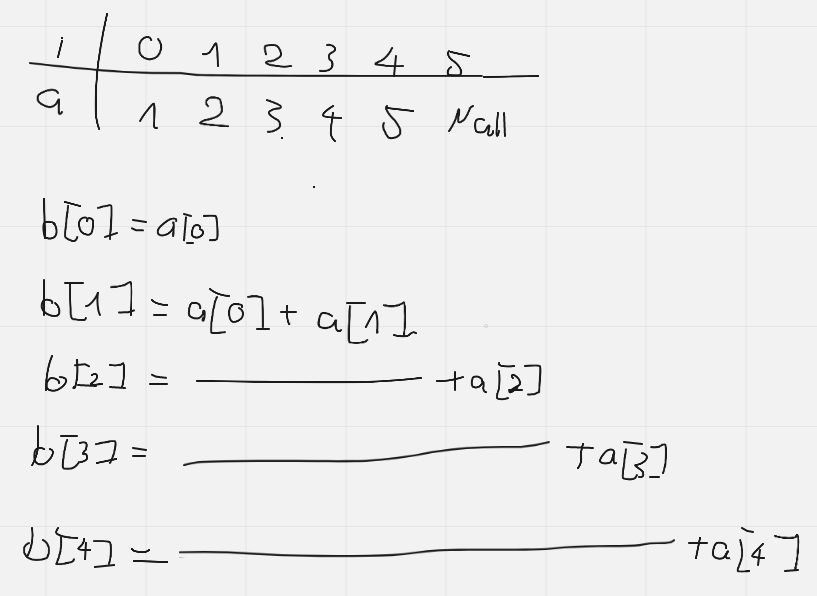 i 0 1 2 3 4 5
a 1 2 3 4 5 Nall
b[0] = a[0]
b[1] = a[0] + a[1]
b[2] = + a[2]
b[3] = + a[3]
b[4] = + a[4]